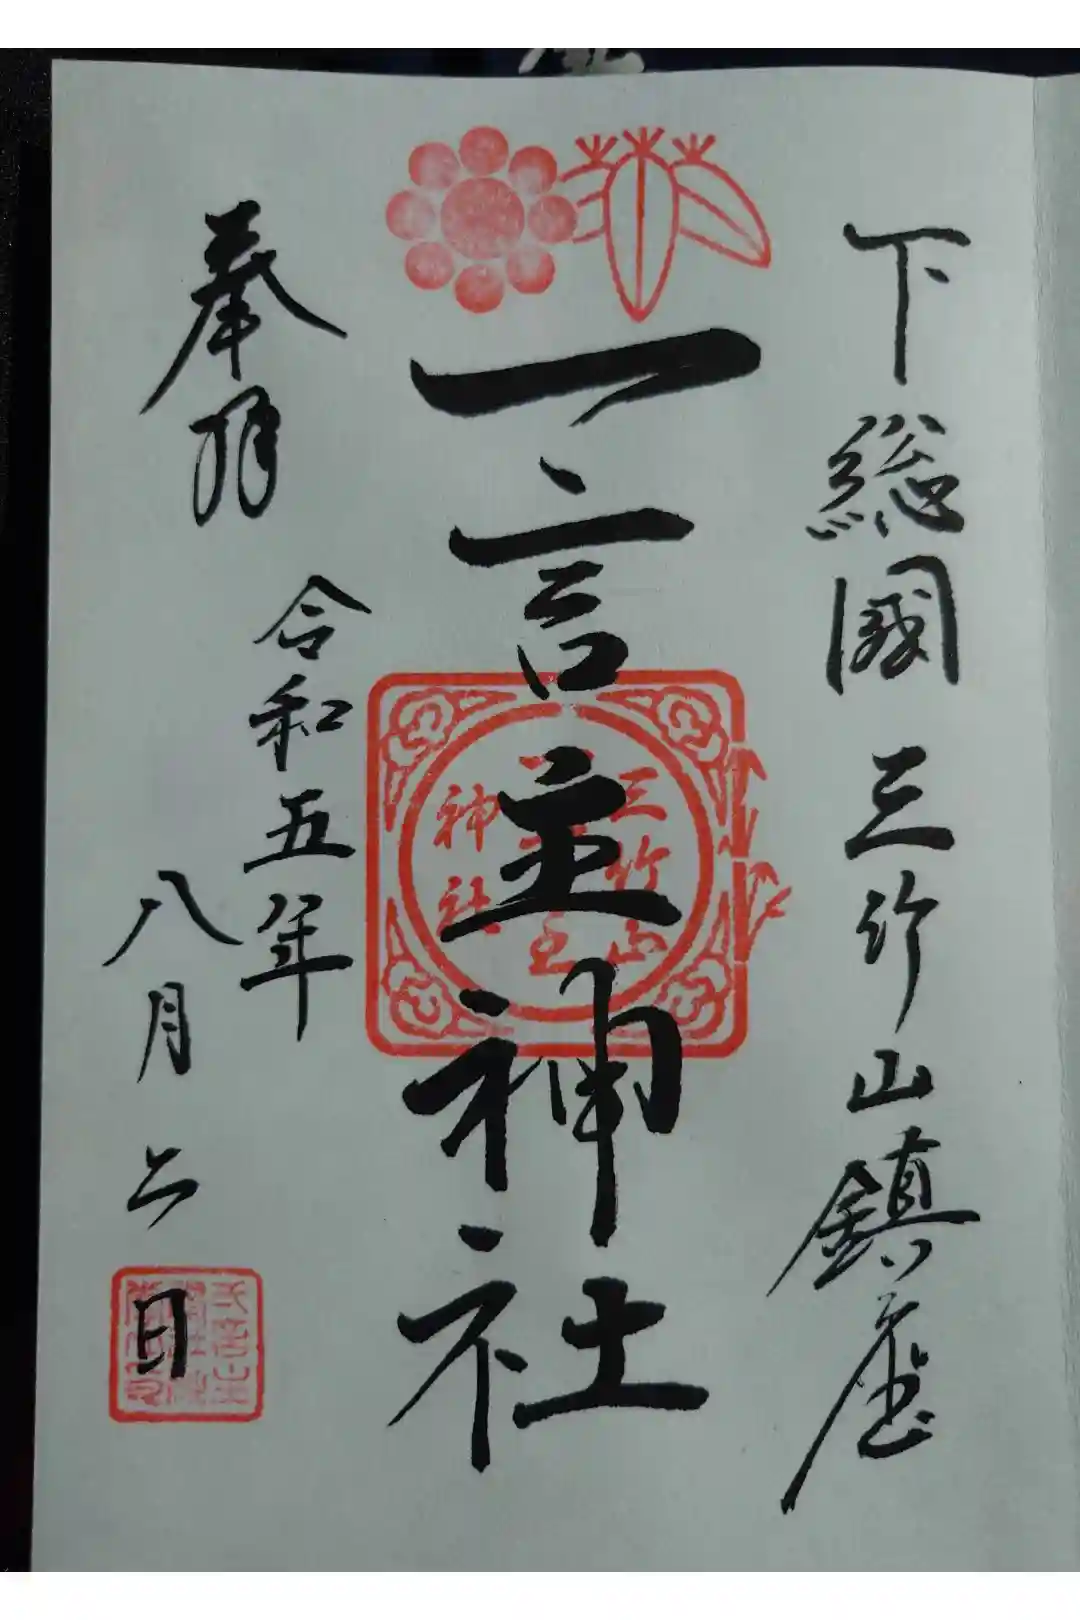 下総國三竹山鎮座
一言主神社
奉拝
令和五年
八月六日
三竹山
一言主
神社